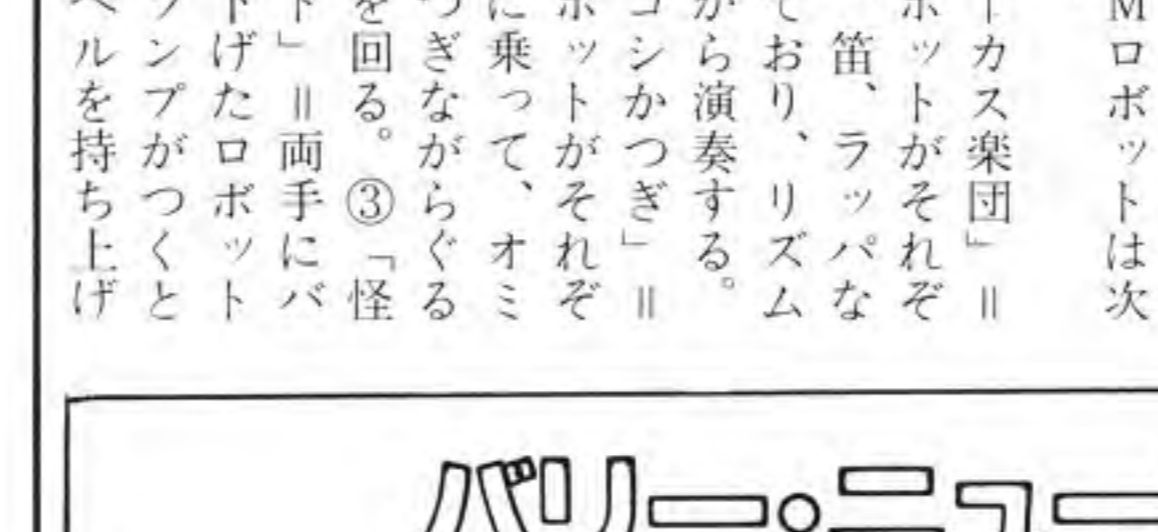 Mロボットは次
ーカス楽団」＝
ボットがそれぞ
笛、ラッパな
ており、リズム
がら演奏する。
コシかつぎ」＝
ボットがそれぞ
に乗って、オミ
つぎながらぐる
を回る。③「怪
ト」＝両手にバ
トげたロボット
ンプがつくと
ベルを持ち上げ
バリー・ニュー